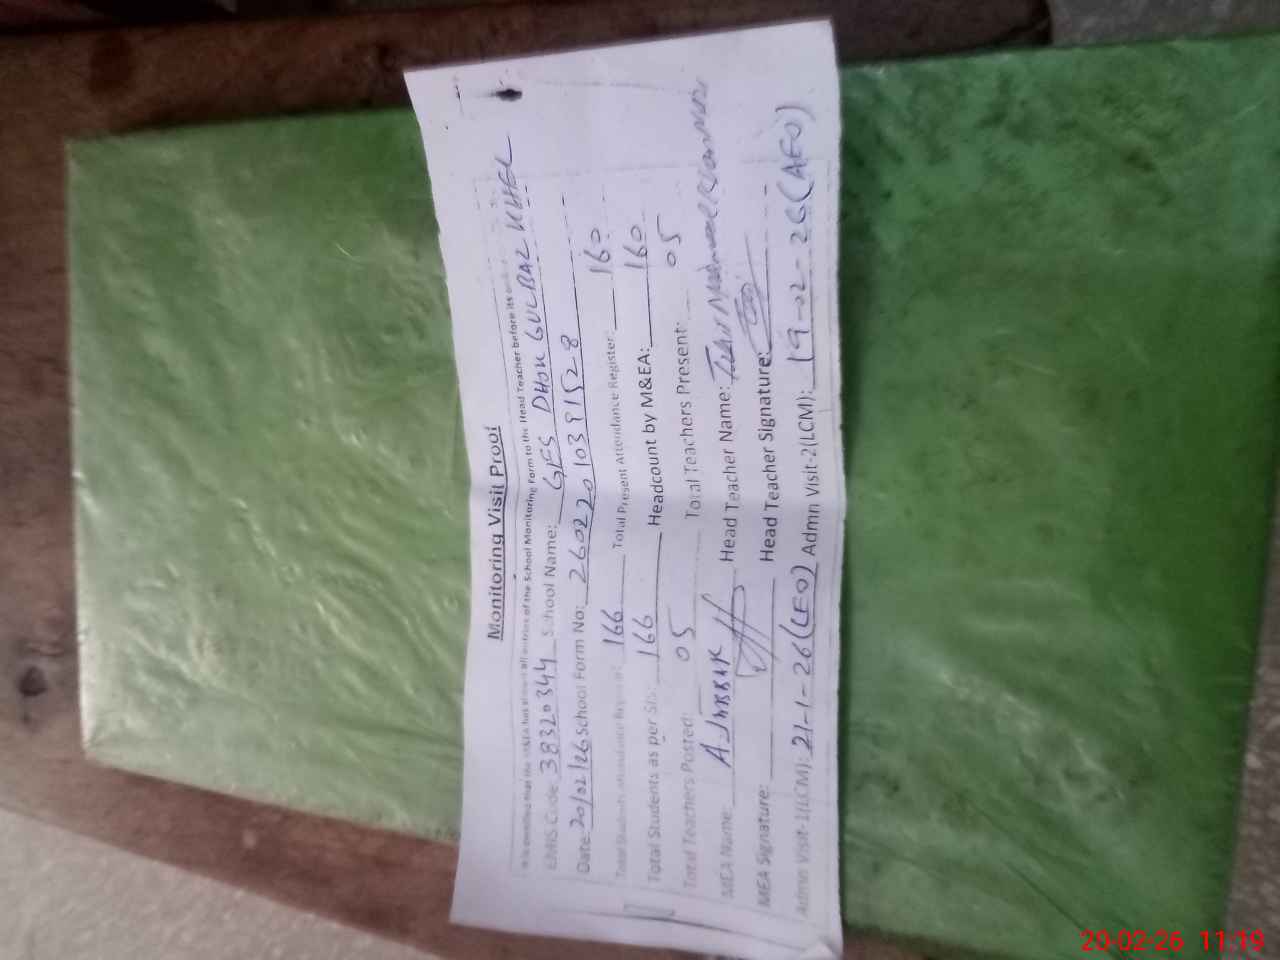 Monitoring Visit Proof
It is certified that the M&EA has shown all entries of the School Monitoring Form to the Head Teacher before its
EMIS Code: 38320344 School Name: GES DHOK GULBAZ KHEL
Date: 20/02/26 School Form No: 260220103915 2-8
Total Students Attendance Register: 166 Total Present Attendance Register: 160
Total Students as per SIS: 166 Headcount by M&EA: 160
Total Teachers Posted: 05 Total Teachers Present: 05
MEA Name: A.JABBAR Head Teacher Name:
MEA Signature: Head Teacher Signature:
Admn Visit-1(LCM): 21-1-26(CEO) Admn Visit-2(LCM): 19-02-26(AEO)
20-02-26 11:19